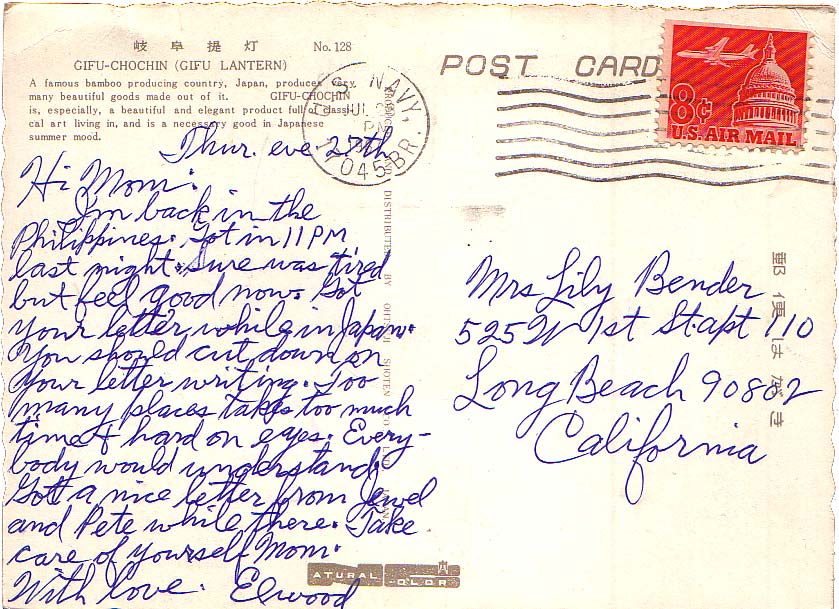 岐阜提灯 No. 128
GIFU-CHOCHIN (GIFU LANTERN)
A famous bamboo producing country, Japan, produces very
many beautiful goods made out of it. GIFU-CHOCHIN
is, especially, a beautiful and elegant product full of classi-
cal art living in, and is a necessary good in Japanese
summer mood.
POST CARD
U.S. NAVY,
JUL
PM
17045 BR.
8¢
U.S. AIR MAIL
Thur. eve 27th
Hi Mom:
I'm back in the
Philippines. Got in 11 PM
last night. Sure was tired
but feel good now. Got
your letter while in Japan.
You should cut down on
your letter writing. Too
many places takes too much
time & hard on eyes. Every-
body would understand.
Got a nice letter from Jewel
and Pete while there. Take
care of yourself Mom.
With love. Elwood
DISTRIBUTED BY SHOTEN
Mrs Lily Bender
525 W 1st St. apt 110
Long Beach 90802
California
郵便はがき
NATURAL COLOR